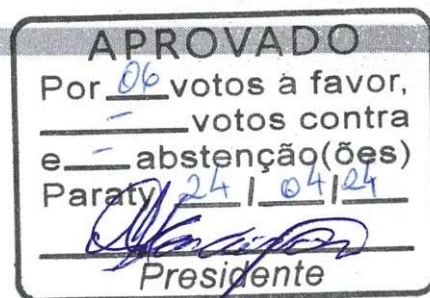 APROVADO
Por 06 votos a favor,
- votos contra
e - abstenção(ões)
Paraty 24 / 04 / 24
Presidente